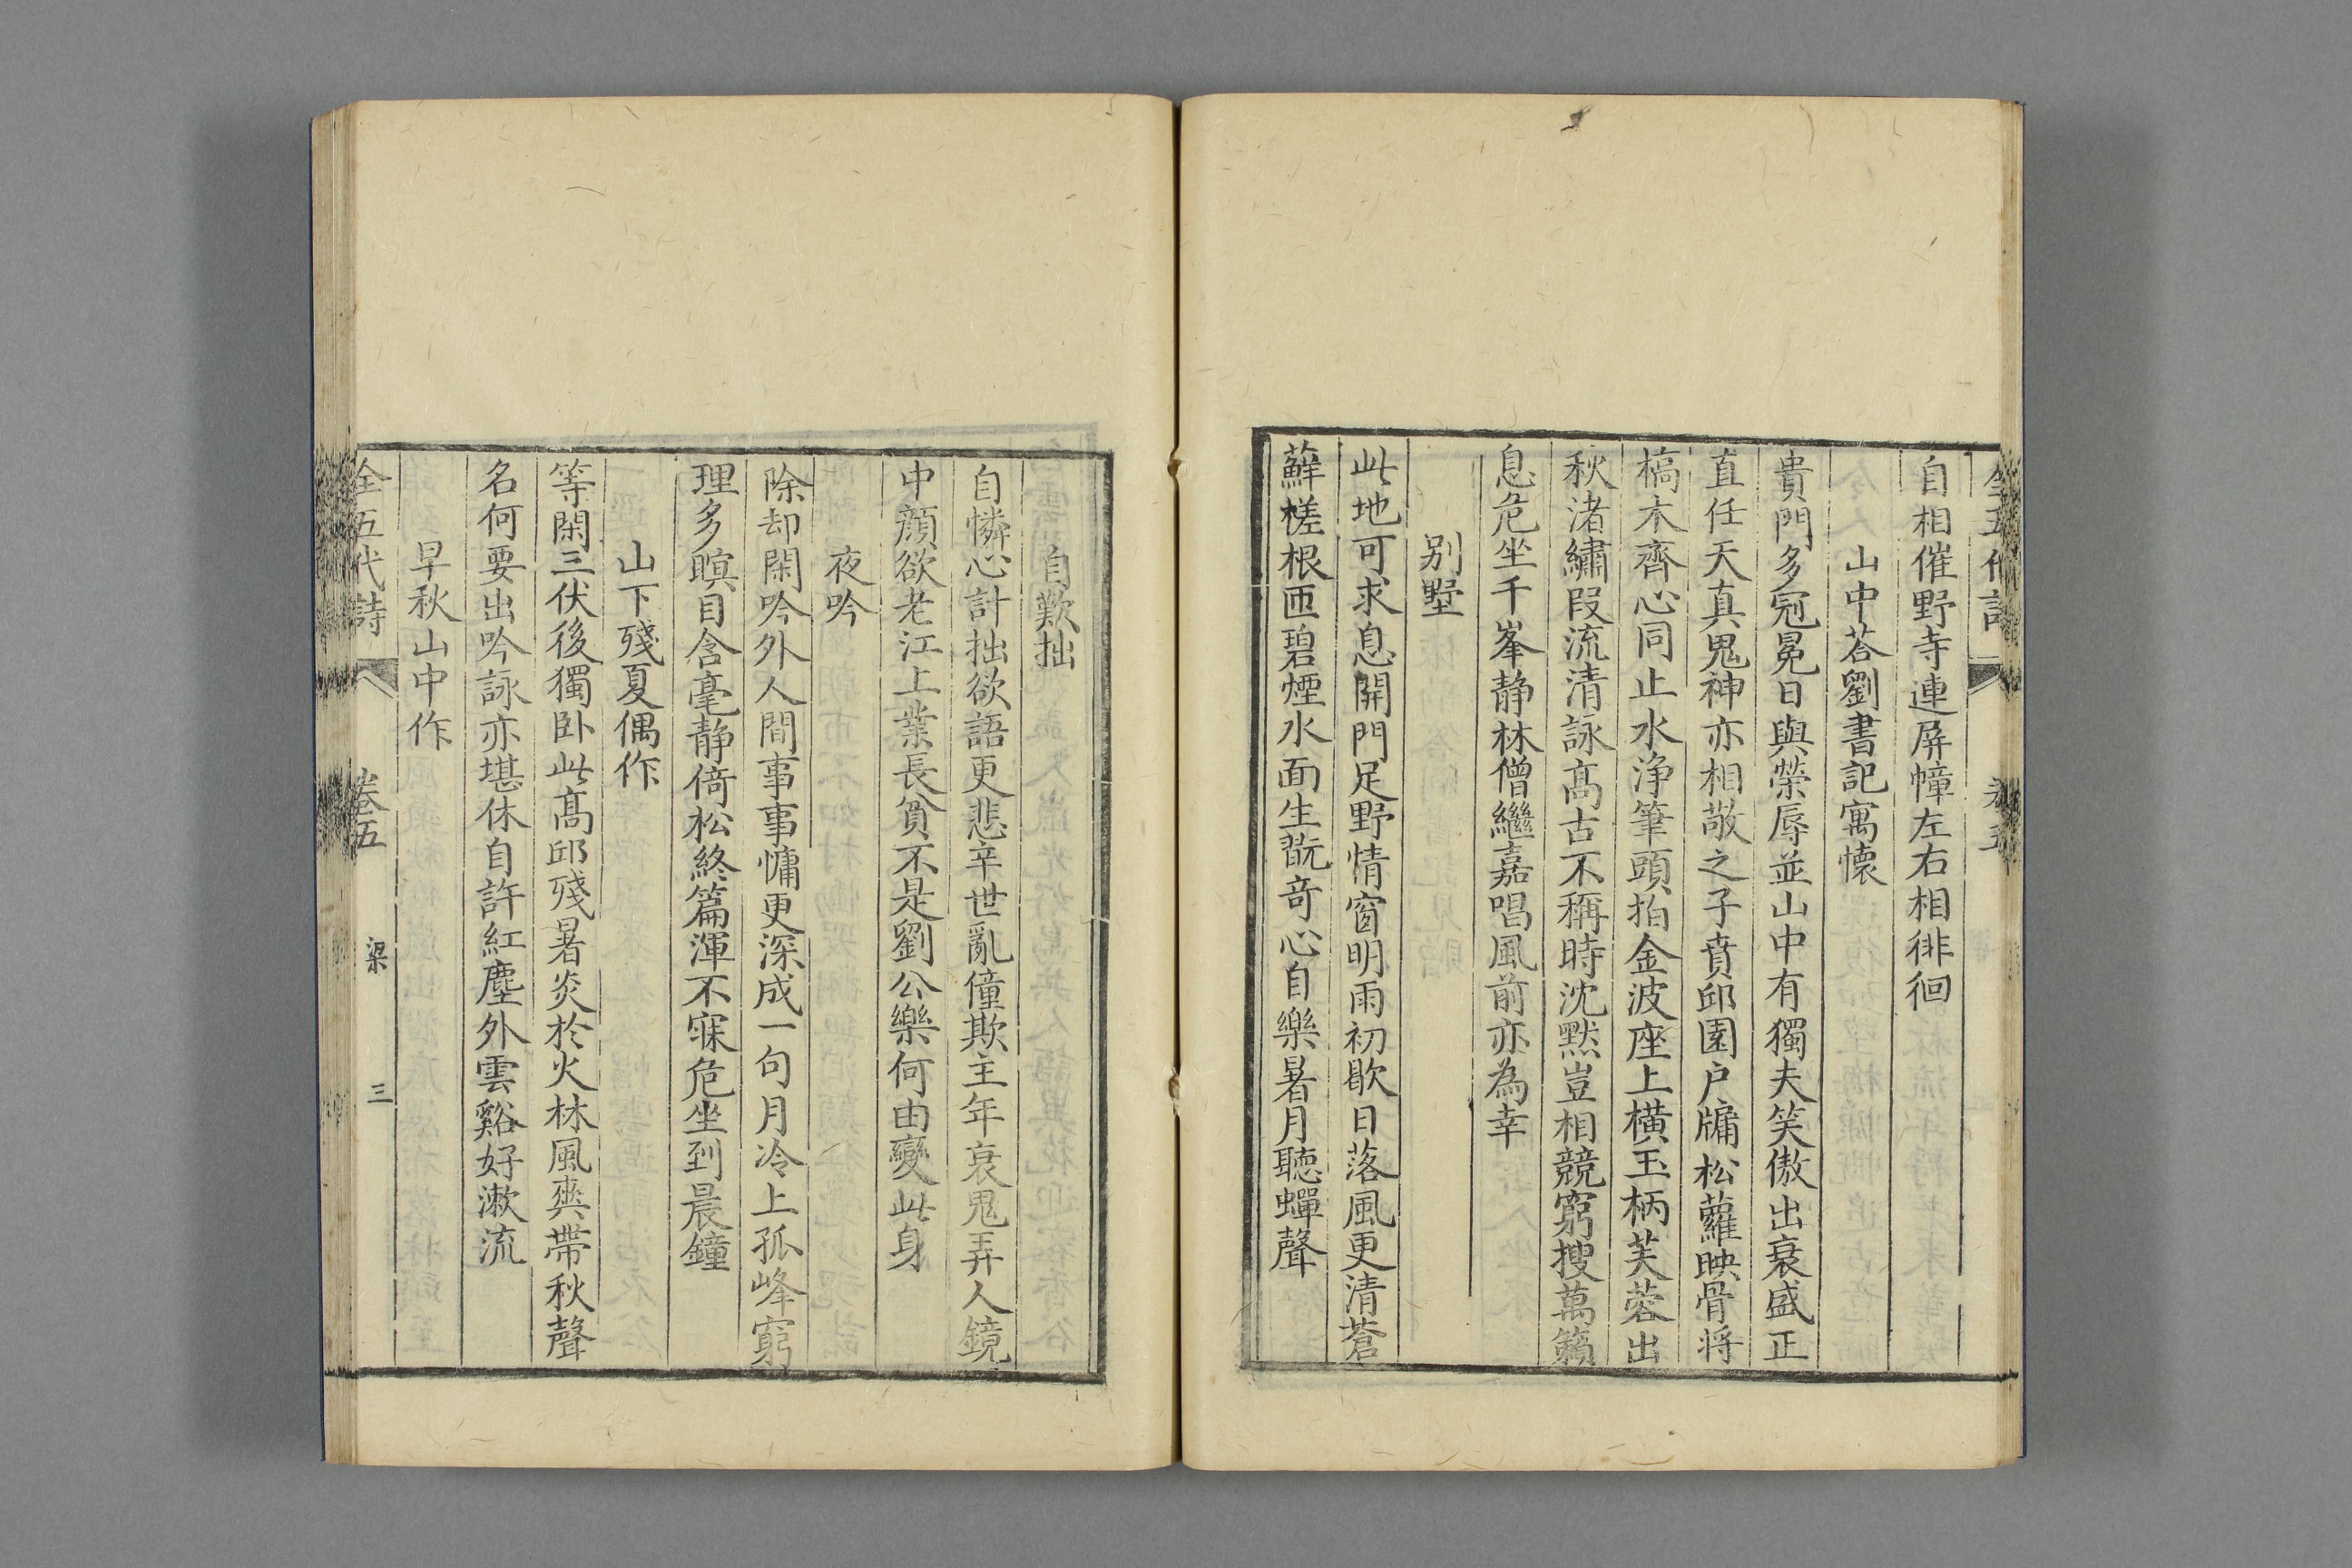 全五代詩 卷五
自相催野寺連屏幛左右相徘徊
山中荅劉書記寓懷
貴門多冠冕日與榮辱並山中有獨夫笑傲出衰盛正
直任天真鬼神亦相敬之子賁邱園户牖松蘿映骨将
槁木齊心同止水浄筆頭拍金波座上橫玉柄芙蓉出
秋渚繡叚流清詠髙古不稱時沈黙豈相競窮搜萬籟
息危坐千峯静林僧繼嘉唱風前亦為幸
别墅
此地可求息開門足野情窗明雨初歇日落風更清蒼
蘚槎根匝碧煙水面生翫奇心自樂暑月聽蟬聲
自歎拙
自憐心計拙欲語更悲辛世亂僮欺主年衰鬼弄人鏡
中顔欲老江上業長貧不是劉公樂何由變此身
夜吟
除却閑吟外人間事事慵更深成一句月冷上孤峰窮
理多瞑目含毫静倚松終篇渾不寐危坐到晨鐘
山下殘夏偶作
等閑三伏後獨卧此髙邱殘暑炎於火林風爽帶秋聲
名何要出吟詠亦堪休自許紅塵外雲谿好漱流
早秋山中作
全五代詩 卷五 梁 三